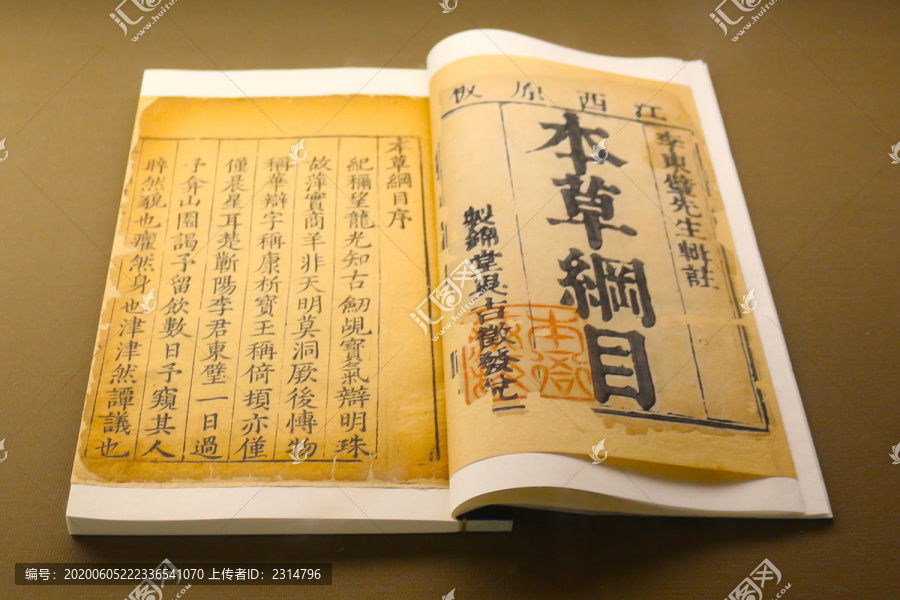 江西原板
李東璧先生輯註
本草綱目
本草綱目序
紀稱望龍光知古劒覘寶氣辯明珠
故萍實商羊非天明莫洞厥後愽物
稱華辯字稱康析寶玉稱倚頓亦僅
僅晨星耳楚蘄陽李君東璧一日過
予弇山園謁予留飲數日予窺其人
睟然貌也癯然身也津津然譚議也
编号：20200605222336541070 上传者ID：2314796
汇图网